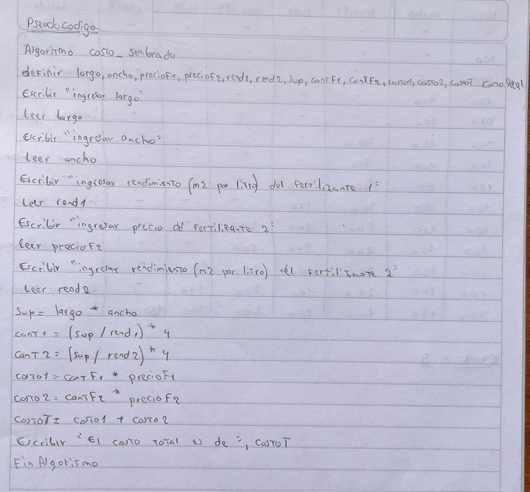 Pseudocodigo
Algoritmo costo_sembrado
definir largo, ancho, precioF1, precioF2, rend1, rend2, sup, cantF1, cantF2, costo1, costo2, costoT como Real
Escribir "ingresar largo"
Leer largo
escribir "ingresar ancho"
Leer ancho
Escribir "ingresar rendimiento (m2 por litro) del fertilizante 1"
Leer rend1
Escribir "ingresar precio del fertilizante 2"
Leer precioF2
Escribir "ingresar rendimiento (m2 por litro) del fertilizante 2"
Leer rend2
Sup = largo * ancho
cant1 = (sup / rend1) * 4
cant2 = (sup / rend2) * 4
costo1 = cantF1 * precioF1
costo2 = cantF2 * precioF2
costoT = costo1 + costo2
Escribir "El costo total es de =", costoT
Fin Algoritmo